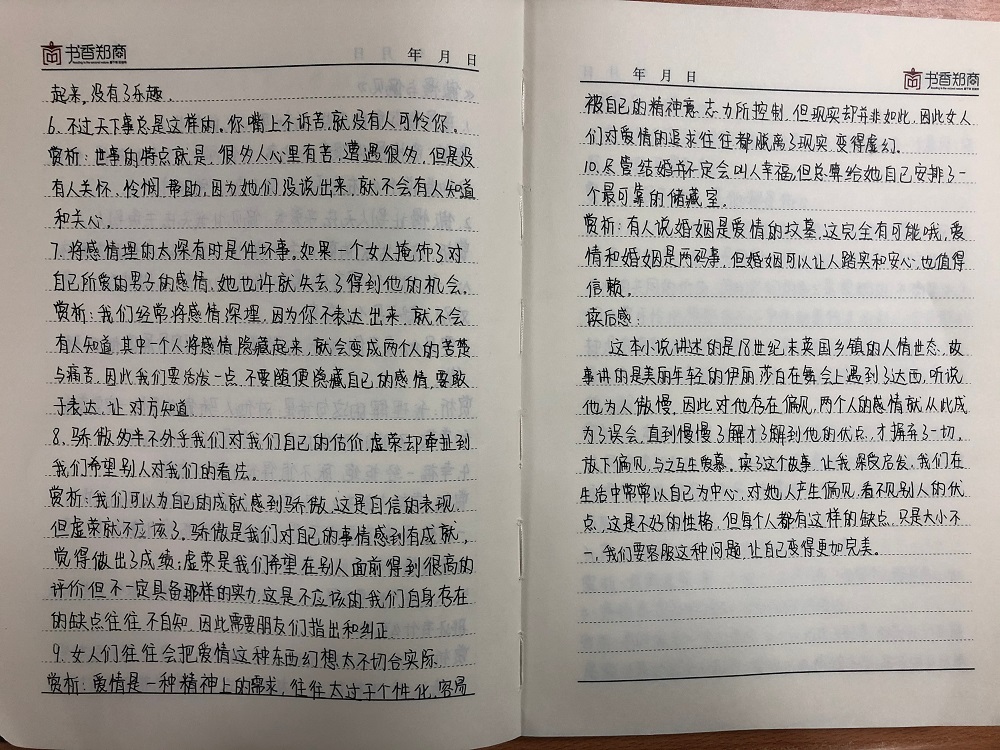 书香郑商
年 月 日
起来，没有了乐趣。
6. 不过天下事总是这样的。你嘴上不诉苦，就没有人可怜你。
赏析：世事的特点就是，很多人心里有苦，遭遇很多，但是没
有人关怀、怜悯、帮助，因为她们没说出来，就不会有人知道
和关心。
7. 将感情埋的太深有时是件坏事。如果一个女人掩饰了对
自己所爱的男子的感情，她也许就失去了得到他的机会。
赏析：我们经常将感情深埋，因为你不表达出来，就不会
有人知道，其中一个人将感情隐藏起来，就会变成两个人的苦楚
与痛苦，因此我们要活发一点，不要随便隐藏自己的感情，要敢
于表达，让对方知道
8. 骄傲多半不外乎我们对我们自己的估价，虚荣却牵扯到
我们希望别人对我们的看法。
赏析：我们可以为自己的成就感到骄傲，这是自信的表现，
但虚荣就不应该了。骄傲是我们对自己的事情感到有成就，
觉得做出了成绩；虚荣是我们希望在别人面前得到很高的
评价但不一定具备那样的实力，这是不应该的，我们自身存在
的缺点往往不自知，因此需要朋友们指出和纠正
9. 女人们往往会把爱情这种东西幻想太不切合实际
赏析：爱情是一种精神上的需求，往往太过于个性化，容易
年 月 日
书香郑商
被自己的精神意志力所控制，但现实却并非如此，因此女人
们对爱情的追求往往都脱离了现实，变得虚幻。
10. 尽管结婚并不定会叫人幸福，但总算给她自己安排了一
个最可靠的储藏室。
赏析：有人说婚姻是爱情的坟墓，这完全有可能哦，爱
情和婚姻是两码事，但婚姻可以让人踏实和安心，也值得
信赖。
读后感：
这本小说讲述的是18世纪末英国乡镇的人情世态，故
事讲的是美丽年轻的伊丽莎白在舞会上遇到了达西，听说
他为人傲慢，因此对他存在偏见，两个人的感情就从此成
为了误会，直到慢慢了解才了解到他的优点，才摒弃了一切，
放下偏见，与之互生爱慕。读了这个故事，让我深受启发，我们在
生活中常常以自己为中心，对她人产生偏见，看不见别人的优
点，这是不好的性格，但每个人都有这样的缺点，只是大小不
一，我们要客服这种问题，让自己变得更加完美。